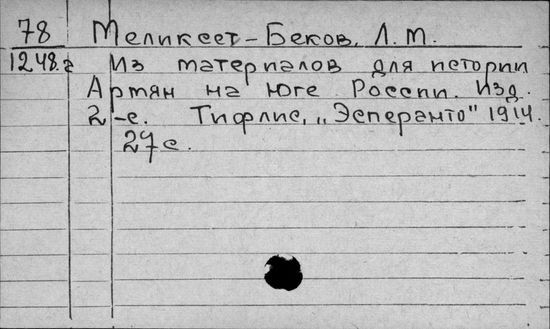 78 Меликсет-Беков, Л. М.
1248.г Из материалов для истории
Армян на юге России. Изд.
2-е. Тифлис, „Эсперанто" 1914.
27 с.